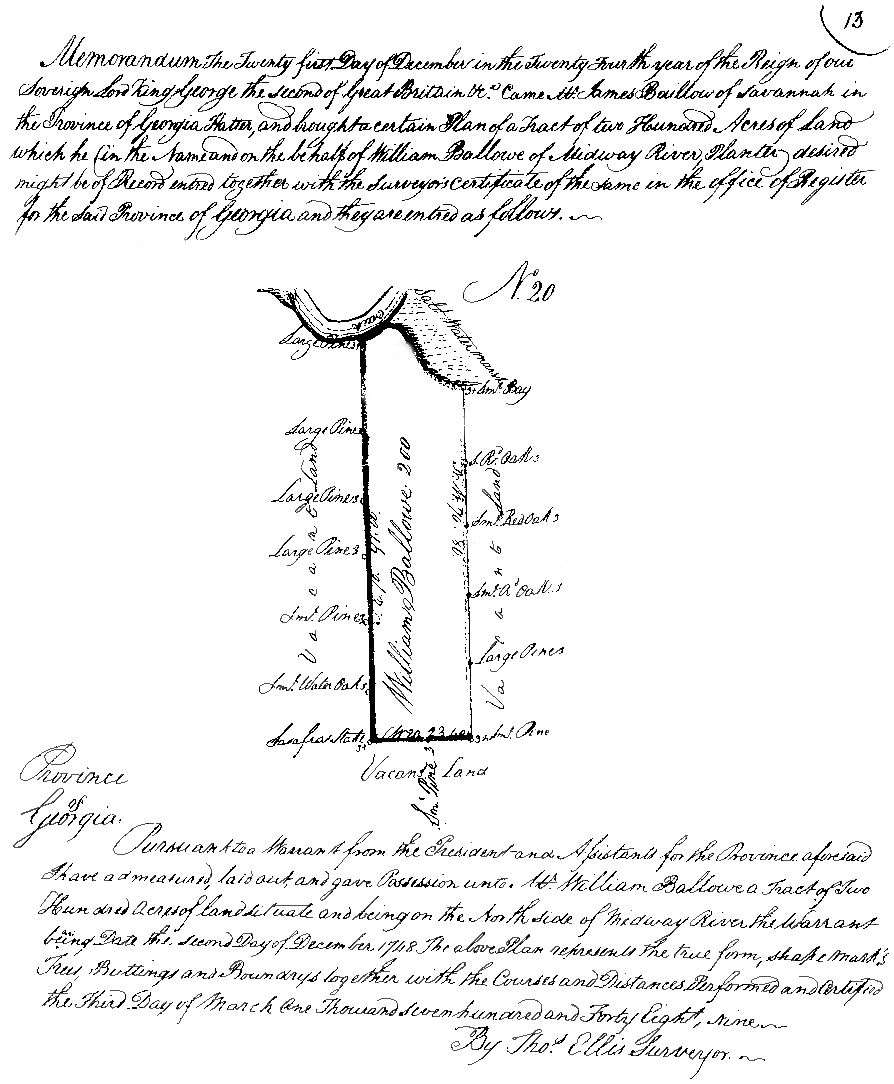 13
Memorandum The Twenty first Day of December in the Twenty Fourth year of the Reign of our
Soverign Lord King George the Second of Great Britain &c. Came Mr. James Baillow of Savannah in
the Province of Georgia Hatter, and brought a certain Plan of a Tract of two Houndred Acres of Land
which he (in the Name and on the behalf of William Ballowe of Midway River, Planter) desired
might be of Record entred together with the Surveyor's Certificate of the same in the office of Register
for the said Province of Georgia and they are entred as follows.
No. 20
Creek
Salt Water marsh
Large Pine 3
3 Sml. Bay
Large Pine
S. Rd. Oak 3
Large Pine 3
Sml. Red Oak 3
Large Pine 3
Sml. Rd. Oak 3
Sml. Pine 3
Large Pine 3
Sml. Water Oak 3
Sasafras Stake
3 Sml. Pine
Vacant Land
William Ballowe 200
Vacant Land
Vacant Land
Sml. Pine 3
Province
of
Georgia.
Pursuant to a Warrant from the President and Assistants for the Province aforesaid
I have admeasured, laid out, and gave Possession unto Mr. William Ballowe a Tract of Two
Hundred Acres of land situate and being on the North side of Midway River the Warrant
being Date the second Day of December 1748. The above Plan represents the true form, shape Mark's
Trees, Buttings and Boundrys together with the Courses and Distances Performed and Certified
the Third Day of March One Thousand seven hundred and Forty Eight, nine
By Thos. Ellis Surveyor.